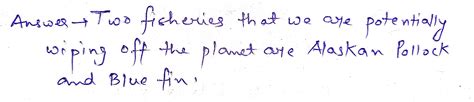 Answer → Two fisheries that we are potentially
wiping off the planet are Alaskan Pollock
and Blue fin.